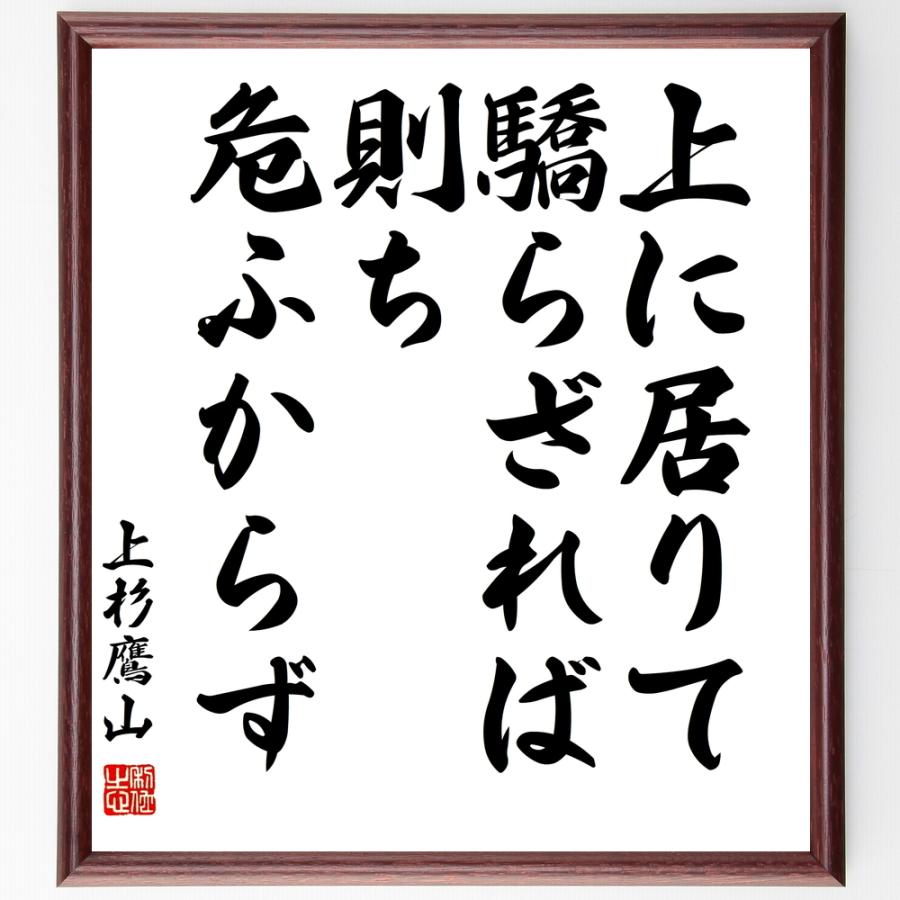 上に居りて
驕らざれば
則ち
危ふからず
上杉鷹山